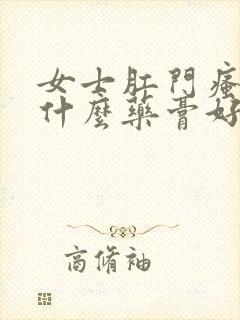 女士肛門瘙
什麼藥膏好
商脩袖